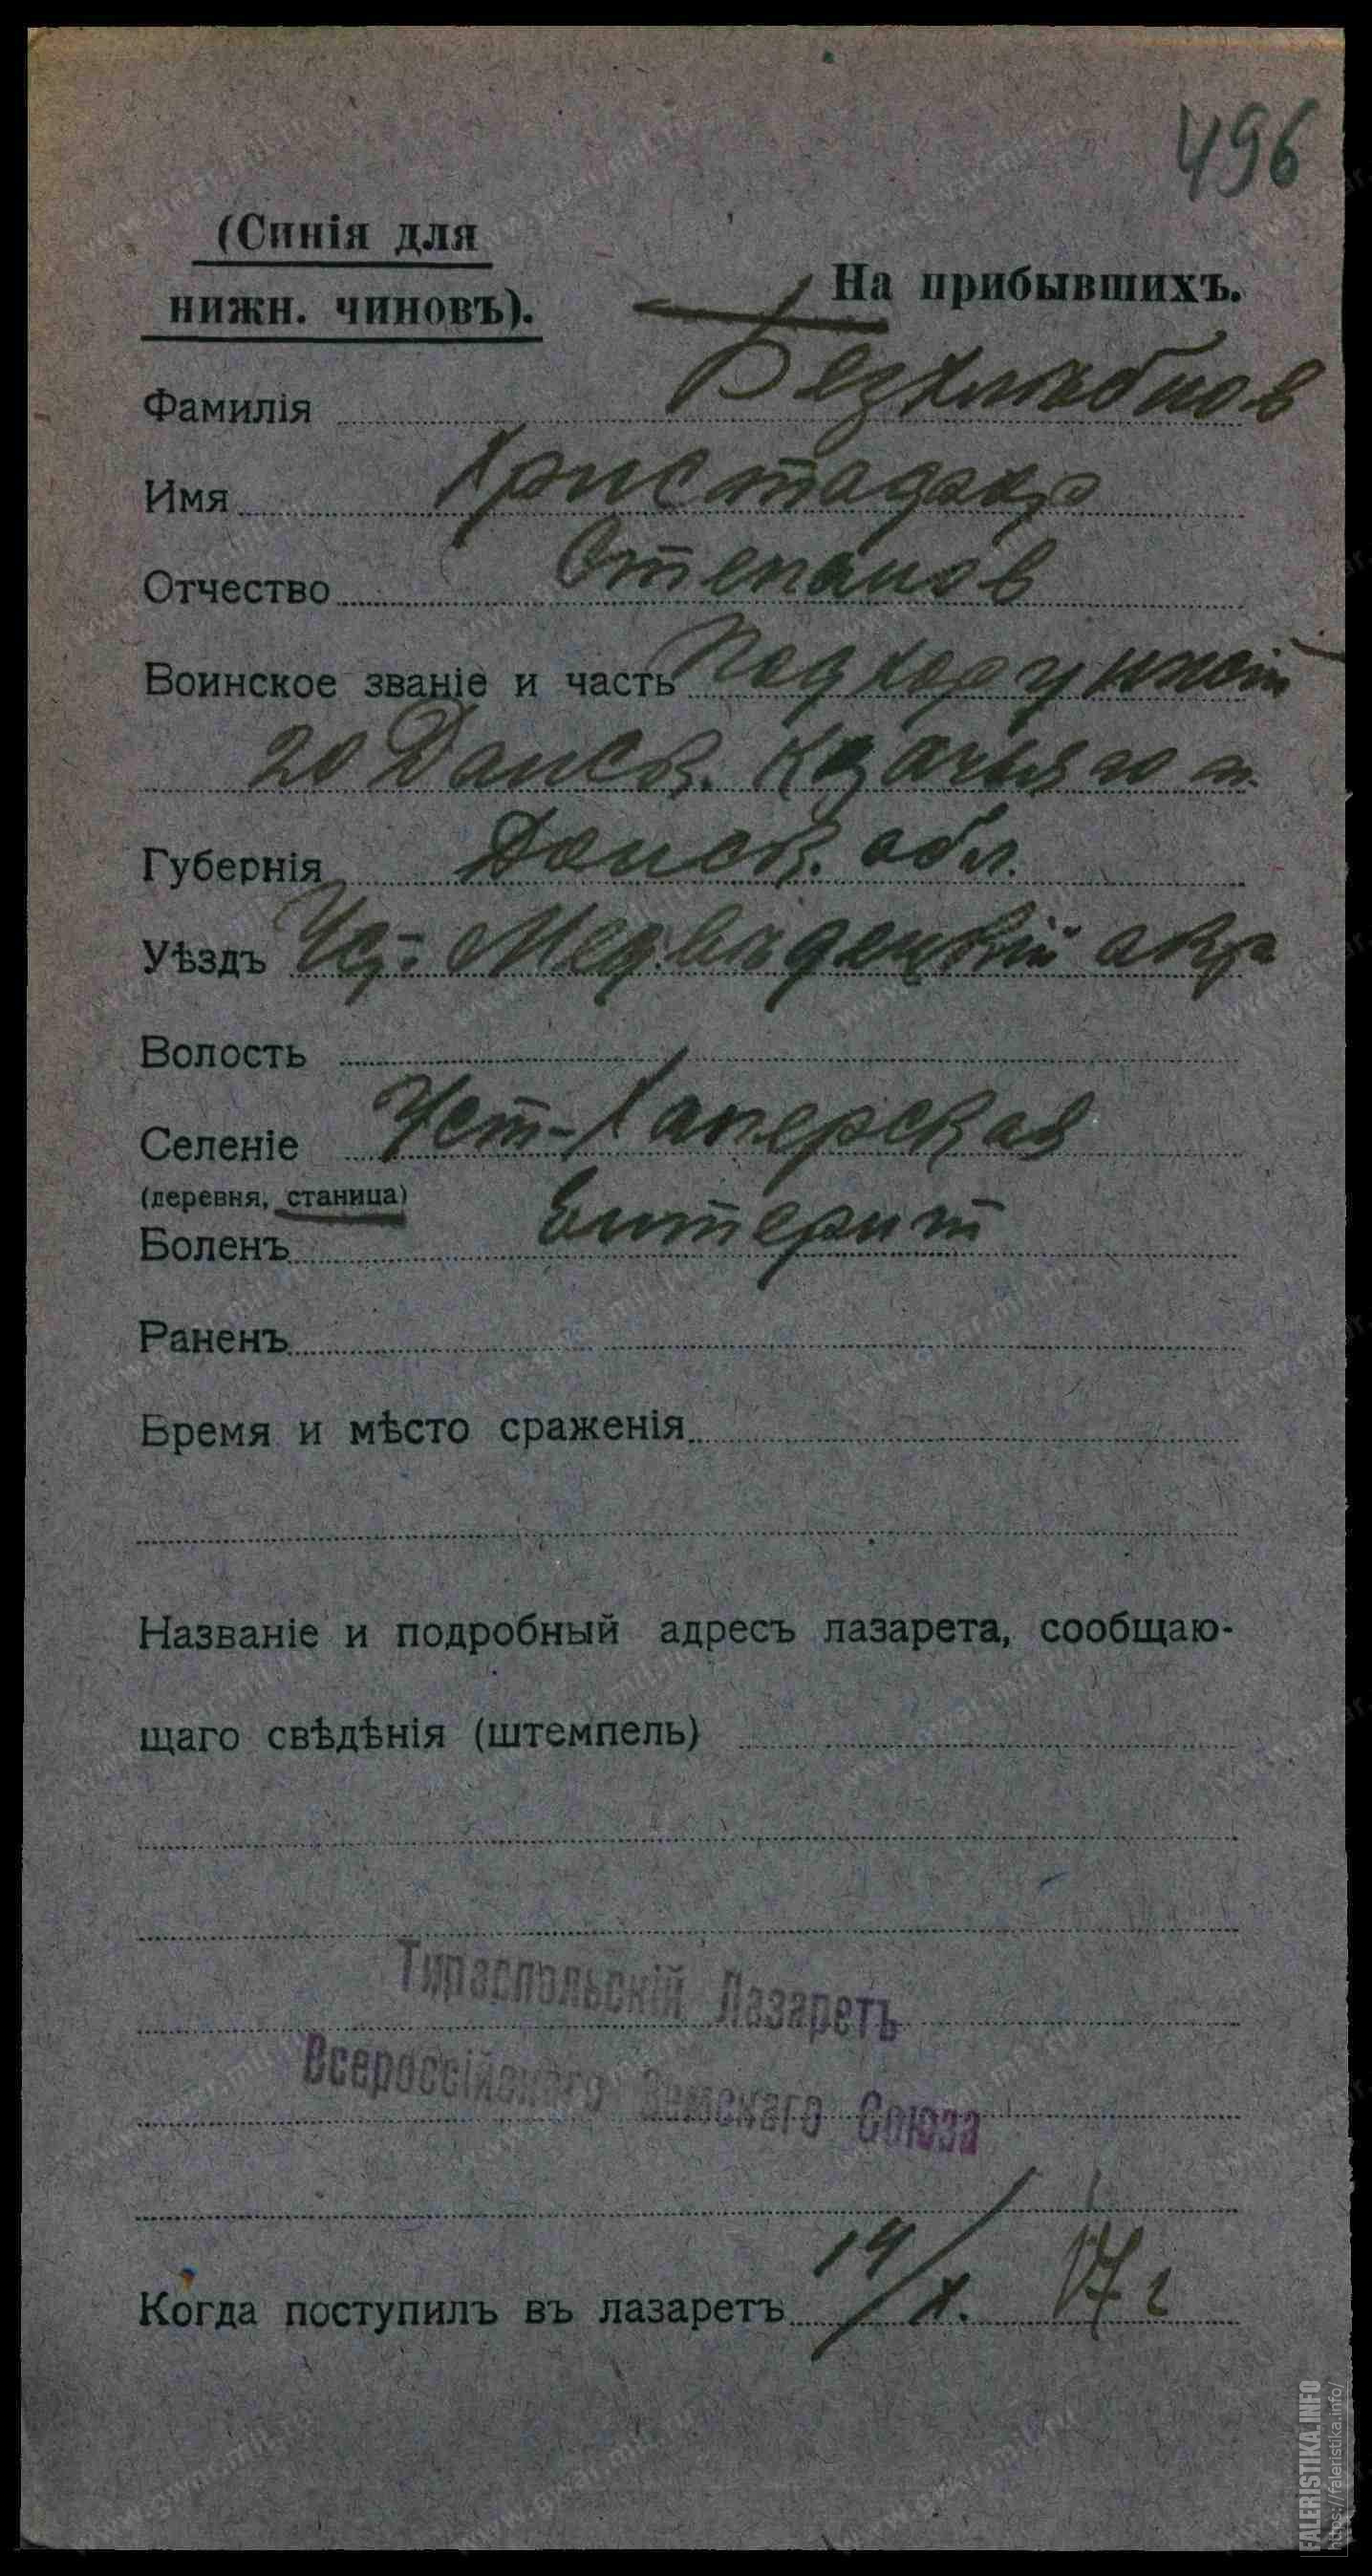 496
(Синія для
нижн. чиновъ).
На прибывшихъ.
Фамилія Безхлѣбнов
Имя
Отчество Степанов
Воинское званіе и часть Подхорунжій
20 Донск. Казачьяго п.
Губернія Донск. обл.
Уѣздъ Ус.-Медвѣдецкій окр
Волость
Селеніе Уст-Хаперская
(деревня, станица)
Боленъ Ентерит
Раненъ
Время и мѣсто сраженія
Названіе и подробный адресъ лазарета, сообщаю-
щаго свѣдѣнія (штемпель)
Тираспольскій Лазаретъ
Всероссійскаго Земскаго Союза
Когда поступилъ въ лазаретъ 14/X. 17 г
FALERISTIKA.INFO
https://faleristika.info/
www.gwar.mil.ru